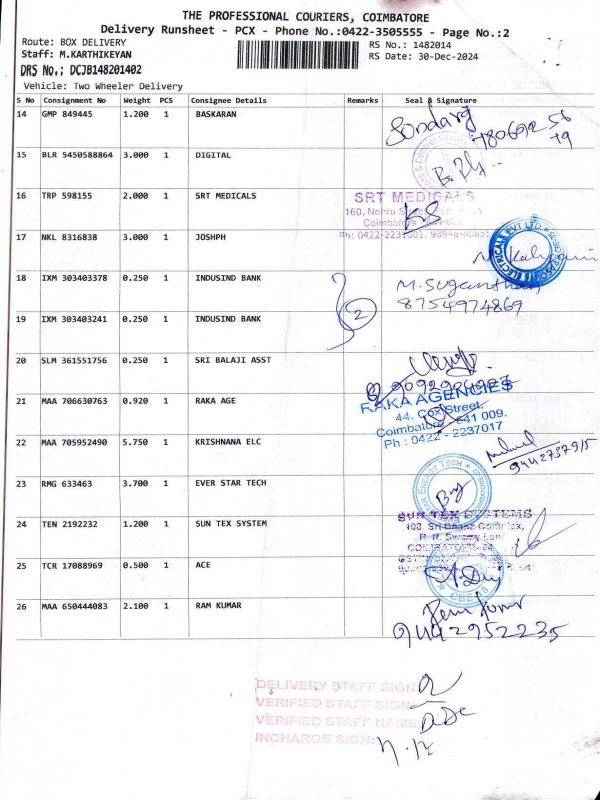 THE PROFESSIONAL COURIERS, COIMBATORE
Delivery Runsheet - PCX - Phone No.:0422-3505555 - Page No.:2
Route: BOX DELIVERY
RS No.: 1482014
Staff: M.KARTHIKEYAN
RS Date: 30-Dec-2024
DRS No.: DCJB148201402
Vehicle: Two Wheeler Delivery
S No Consignment No Weight PCS Consignee Details Remarks Seal & Signature
14 GMP 849445 1.200 1 BASKARAN
15 BLR 5450588864 3.000 1 DIGITAL
16 TRP 598155 2.000 1 SRT MEDICALS
SRT MEDICALS
160, Nehru
Coimbatore
17 NKL 8316838 3.000 1 JOSHPH
18 IXM 303403378 0.250 1 INDUSIND BANK
M. Suganthan
8754974869
2
19 IXM 303403241 0.250 1 INDUSIND BANK
20 SLM 361551756 0.250 1 SRI BALAJI ASST
21 MAA 706630763 0.920 1 RAKA AGE
RAKA AGENCIES
44, Cox Street,
Coimbatore - 641 009.
Ph : 0422 - 2237017
22 MAA 705952490 5.750 1 KRISHNANA ELC
9442737915
23 RMG 633463 3.700 1 EVER STAR TECH
24 TEN 2192232 1.200 1 SUN TEX SYSTEM
SUN TEX SYSTEMS
25 TCR 17088969 0.500 1 ACE
26 MAA 650444083 2.100 1 RAM KUMAR
9442952235
DELIVERY STAFF SIGN:
VERIFIED STAFF SIGN:
VERIFIED STAFF NAME:
INCHARGE SIGN: